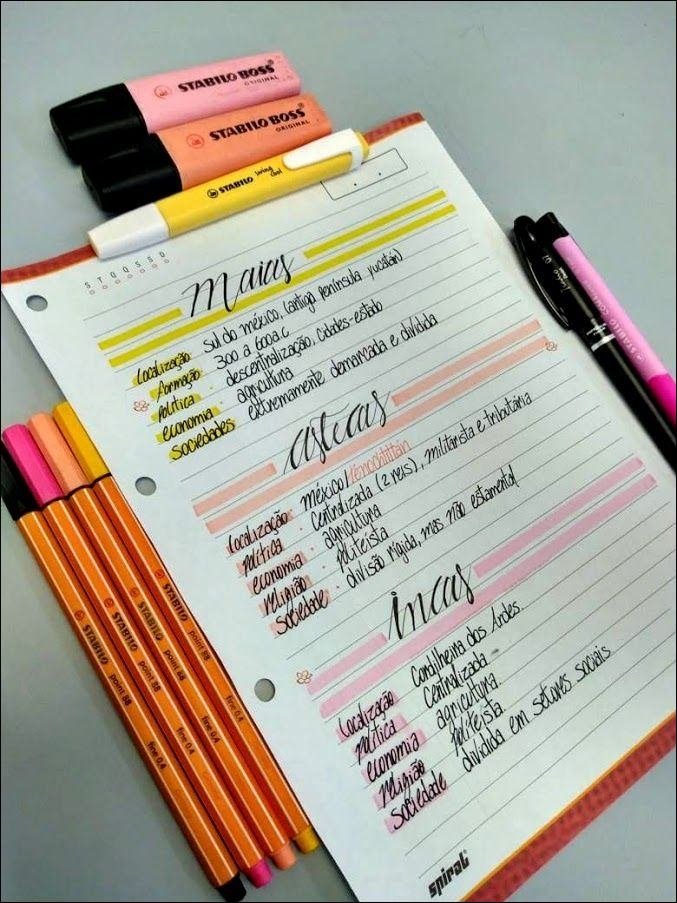 STABILO BOSS
ORIGINAL
STABILO BOSS
ORIGINAL
STABILO swing cool
S T Q Q S S D
Maias
Localização · Sul do méxico, (antiga península yucatán)
Formação · 300 a 600 a.c
política · descentralização, cidades-estado
economia · agricultura
sociedades · extremamente demarcada e dividida
astecas
Localização · México/Tenochtitlán
política · Centralizada (2 reis), militarista e tributária
economia · agricultura
religião · politeísta
Sociedade · divisão rígida, mas não estamental
incas
Localização Cordilheira dos Andes
política Centralizada
economia agricultura
religião politeísta
Sociedade dividida em setores sociais
spiral
STABILO point 88 fine 0.4
STABILO point 88 fine 0.4
STABILO point 88 fine 0.4
STABILO point 88 fine 0.4
STABILO